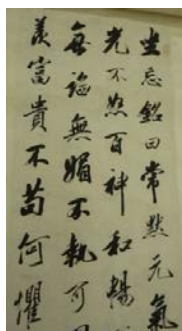 坐忘銘曰常默元氣
光不怒百神和暢
無諂無媚不執可
羨富貴不苟何懼